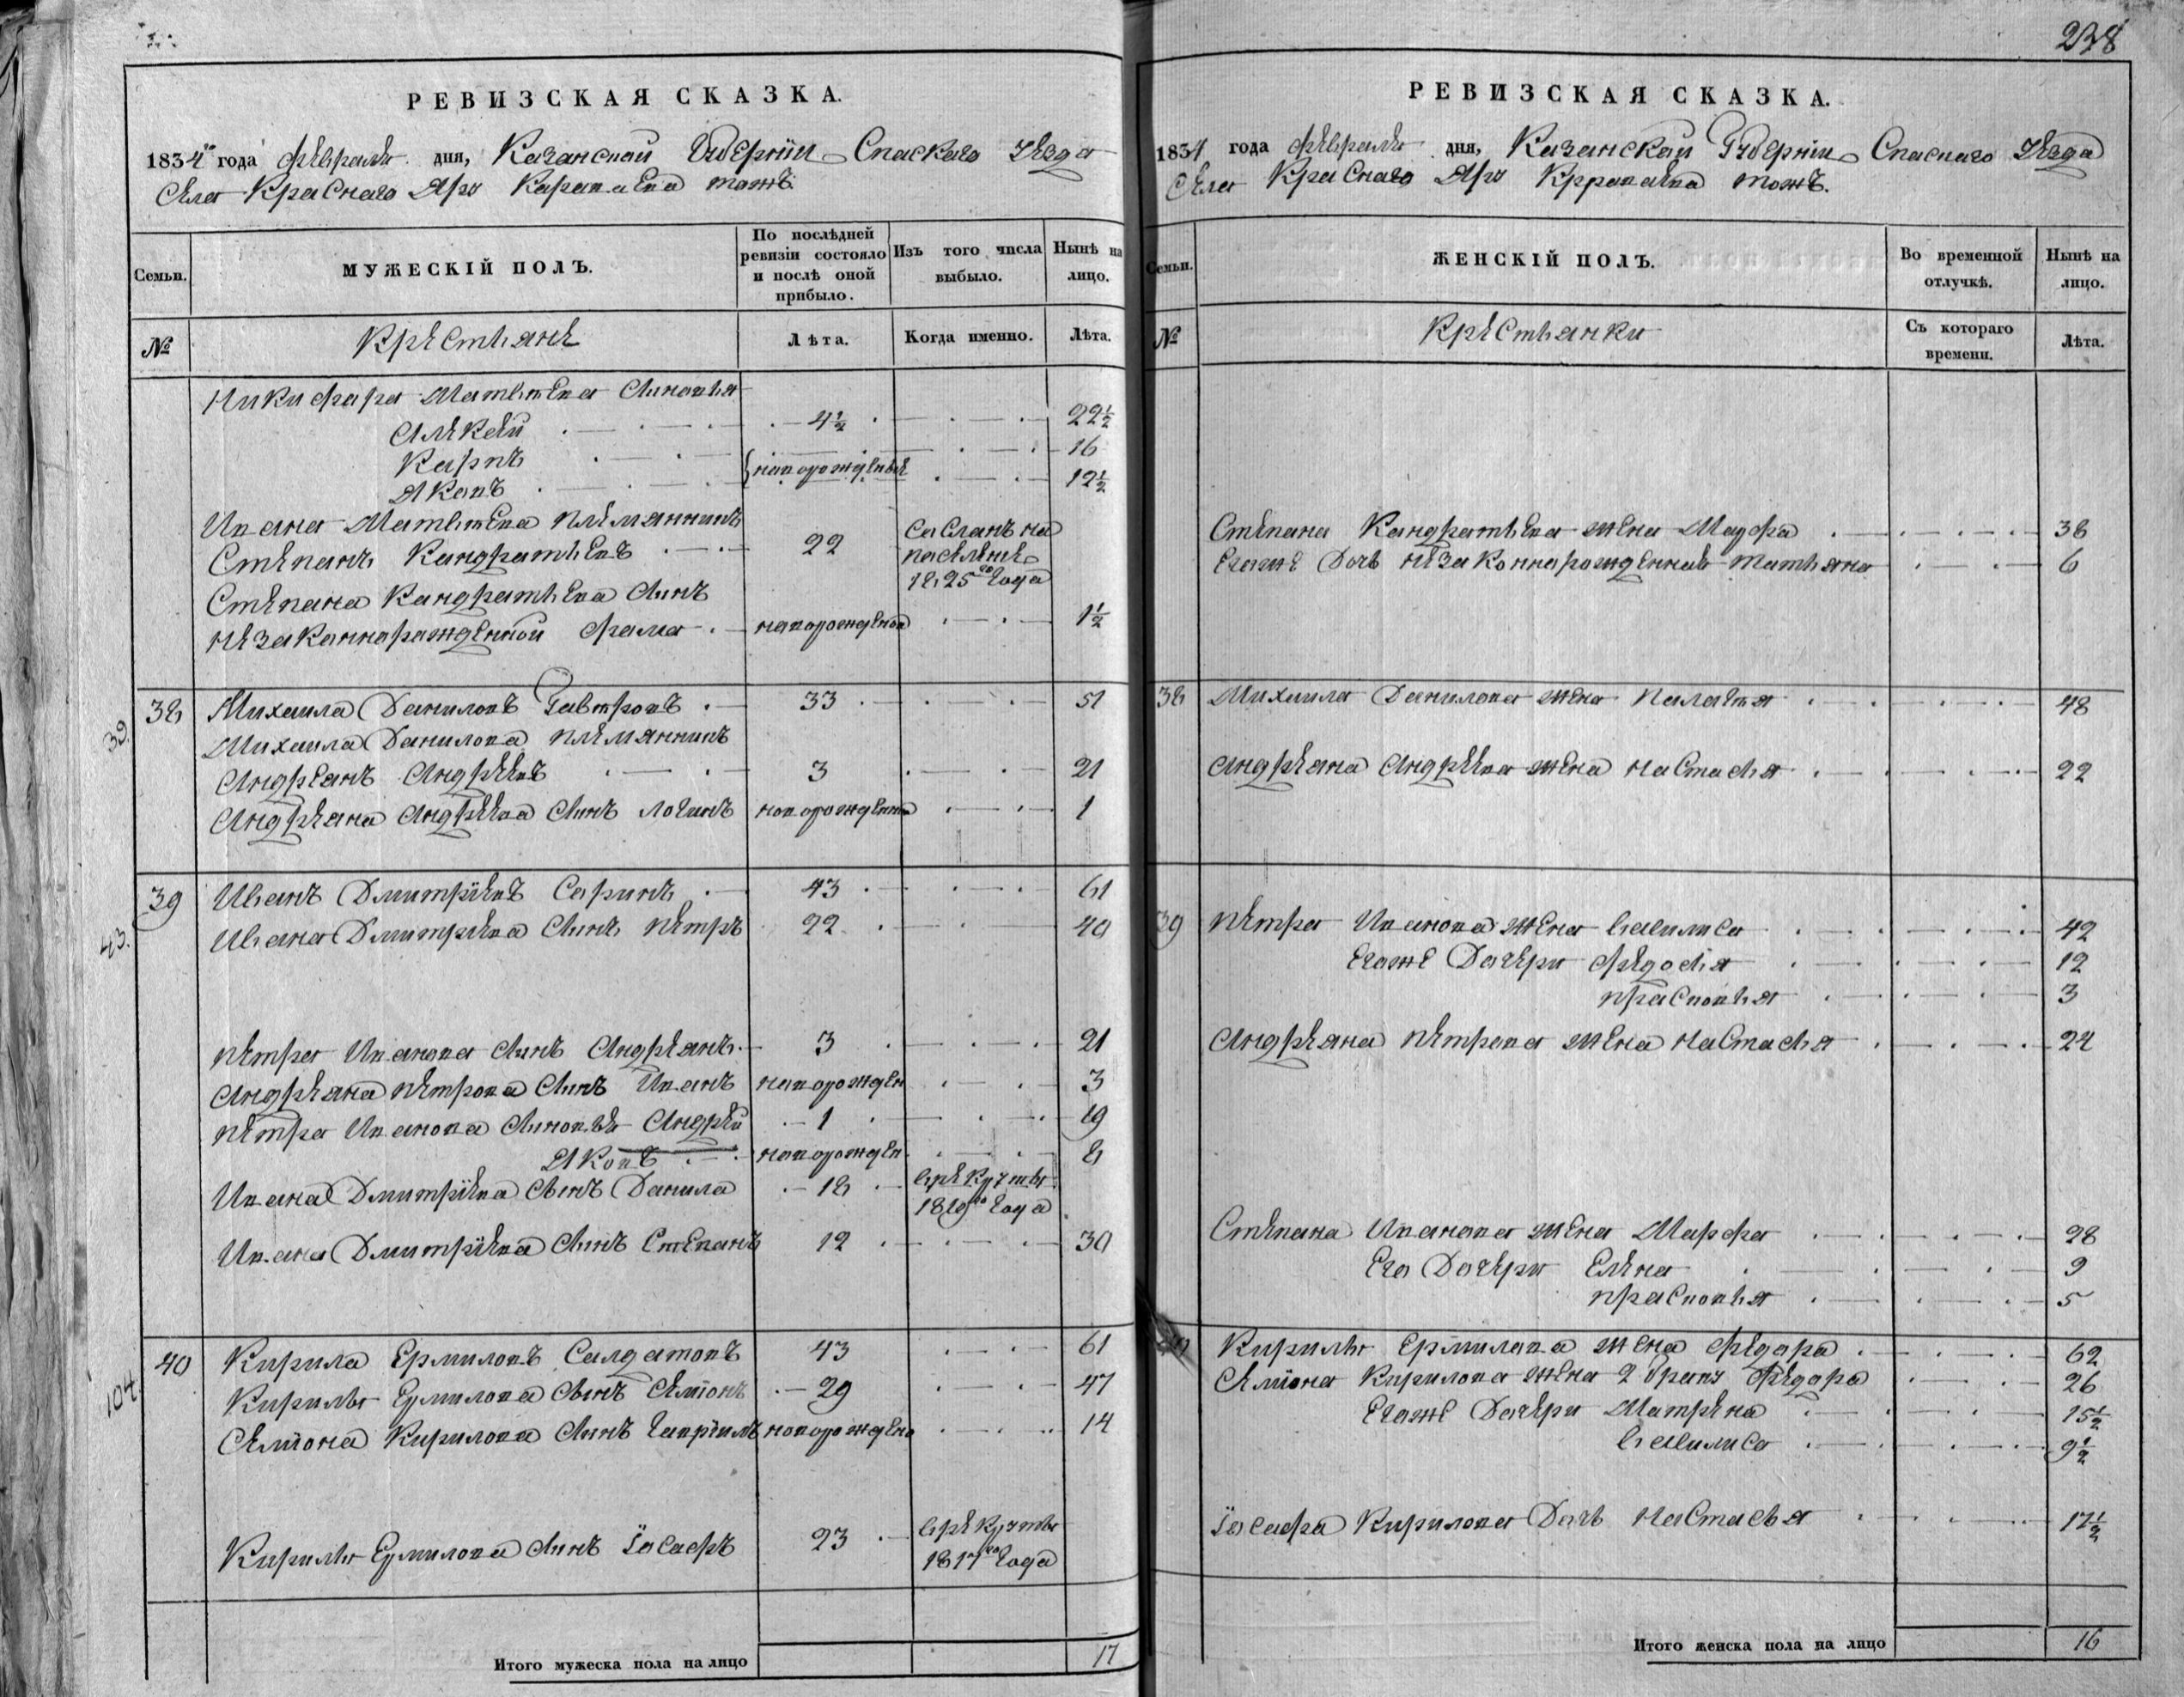 РЕВИЗСКАЯ СКАЗКА.
1834го года февраля дня, Казанской Губернiи Спаскаго Уезда
Села Краснаго Яру Караваева тожъ
Семьи.
МУЖЕСКІЙ ПОЛЪ.
По послѣдней ревизіи состояло и послѣ оной прибыло.
Изъ того числа выбыло.
Нынѣ на лицо.
№
Крестьяне
Лѣта.
Когда именно.
Лѣта.
Никифара Матвеева Сыновья
Алекей 4½ 22½
Карпъ 16
новорожденые
Яковъ 12½
Ивана Матвеева племянникъ
Степанъ Кандратьевъ 22 Сасланъ на
паселение
1825го Года
Степана Кандратьева Сынъ
незаканнаражденной Фама новорожденой 1½
39.
38 Михаила Даниловъ Гавтровъ 33 51
Михаила Данилова племянникъ
Андреанъ Андреевъ 3 21
Андреана Андреева Сынъ Логинъ новорожденна 1
43.
39 Иванъ Дмитрiевъ Саринъ 43 61
Ивана Дмитрева Сынъ Петръ 22 40
Петра Иванова Сынъ Андреанъ 3 21
Андреана Петрова Сынъ Иванъ новорожден 3
Петра Иванова Сыновья Андрей 1 19
Яковъ новорожден 8
Ивана Дмитрiева Сынъ Данила 18 врекруты
1819го Года
Ивана Дмитрiева Сынъ Степанъ 12 30
104.
40 Кирила Ермиловъ Салдатовъ 43 61
Кирилы Ермилова Сынъ Семiонъ 29 47
Семiона Кирилова Сынъ Гаврiилъ новорождена 14
Кирилы Ермилова Сынъ Iасафъ 23 врекруты
1817го Года
Итого мужеска пола на лицо 17
238
РЕВИЗСКАЯ СКАЗКА.
1834 года февраля дня, Казанской Губернiи Спаскаго Уезда
Села Краснаго Яру Карраваева тожъ.
Семьи.
ЖЕНСКІЙ ПОЛЪ.
Во временной отлучкѣ.
Нынѣ на лицо.
№
Крестьянки
Съ котораго времени.
Лѣта.
Степана Кандратьева жена Марфа 38
Егоже Дочь незаконнарожденная Татьяна 6
38 Михаила Данилова жена Палагея 48
Андреана Андреева жена Настасья 22
39 Петра Иванова жена Василиса 42
Егоже Дочери Федосья 12
Прасковья 3
Андреана Петрова жена Настасья 24
Степана Иванова жена Марфа 28
Его Дочери Елена 9
Прасковья 5
40 Кирилы Ермилова жена Федора 62
Семiона Кирилова жена 2 браку Федора 26
Егоже Дочери Матрена 15½
Василиса 9½
Iасафа Кирилова Дочь Настасья 17½
Итого женска пола на лицо 16